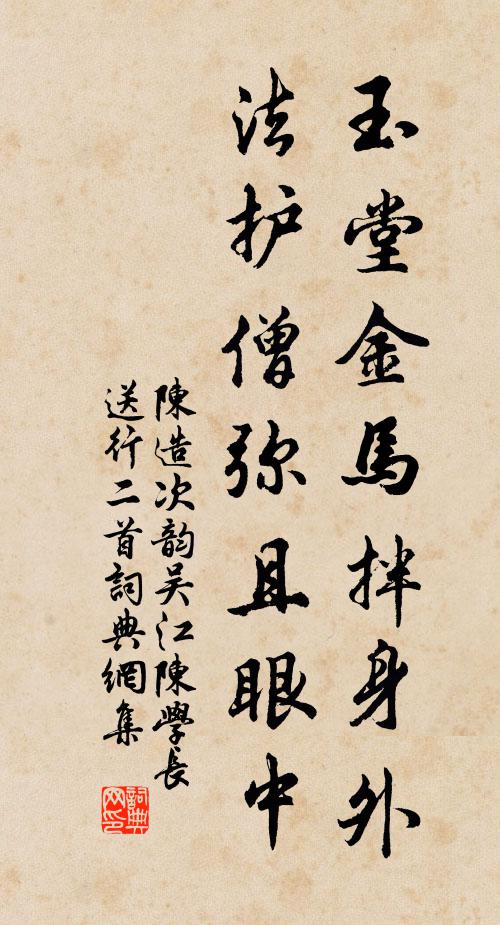 玉堂金馬拌身外
法护僧弥且眼中
陳造次韵吴江陳學長
送行二首詞典網集
詞典
网印